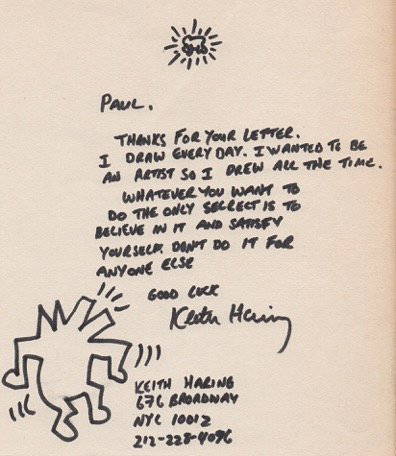 PAUL.
THANKS FOR YOUR LETTER.
I DRAW EVERY DAY. I WANTED TO BE
AN ARTIST SO I DREW ALL THE TIME.
WHATEVER YOU WANT TO
DO THE ONLY SECRECT IS TO
BELIEVE IN IT AND SATISFY
YOURSELF. DON'T DO IT FOR
ANYONE ELSE
GOOD LUCK
Keith Haring
KEITH HARING
676 BROADWAY
NYC 10012
212-228-4096